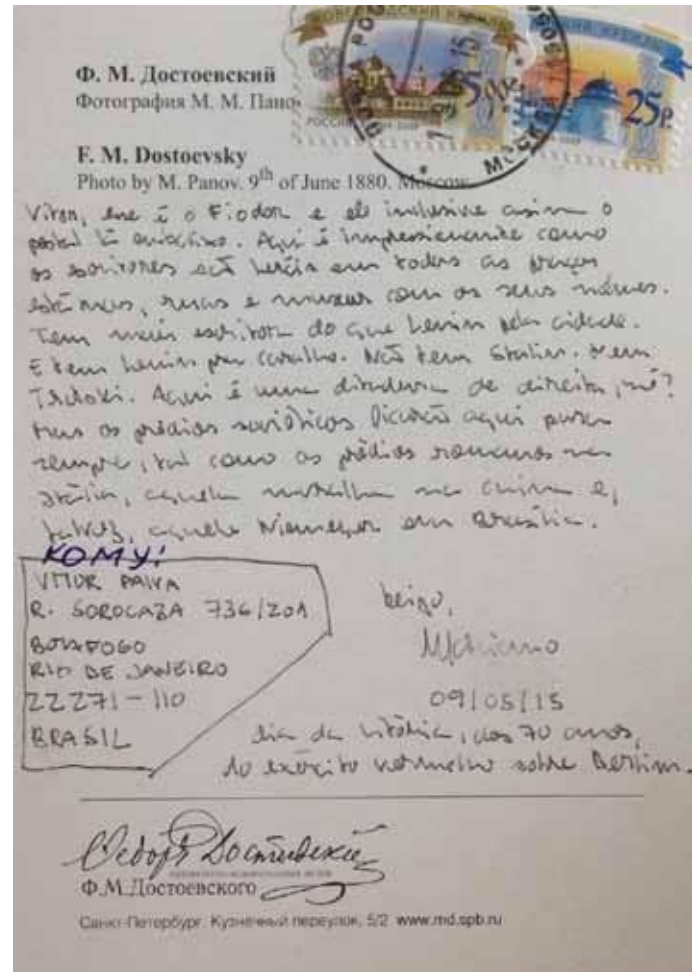 НОВГОРОДСКИЙ КРЕМЛЬ
КРЕМЛЬ
5,00
25Р.
РОССИЯ
МОСКВА
Ф. М. Достоевский
Фотография М. М. Пано
F. M. Dostoevsky
Photo by M. Panov. 9th of June 1880. Moscow
Vitor, esse é o Fiodor e ele inclusive assina o
postal lá embaixo. Aqui é impressionante como
os escritores são heróis em todas as praças
estátuas, ruas e museus com os seus nomes.
Tem mais escritor do que Lenin pela cidade.
E tem Lenin pra caralho. Não tem Stalin. Nem
Trótski. Aqui é uma ditadura de direita, né?
mas os prédios soviéticos ficarão aqui para
sempre, tal como os prédios romanos na
Itália, aquela muralha na China e,
talvez, aquele Niemeyer em Brasília.
КОМУ:
VITOR PAIVA
R. SOROCABA 736/201
BOTAFOGO
RIO DE JANEIRO
22271-110
BRASIL
beijo,
09/05/15
dia da vitória, dos 70 anos,
do exército vermelho sobre Berlim.
Ѳедоръ Достоевский
Ф.М.Достоевского
Санкт-Петербург. Кузнечный переулок, 5/2 www.md.spb.ru